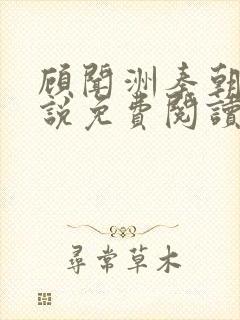 顧聞洲秦朝
說免費閱讀
尋常草木